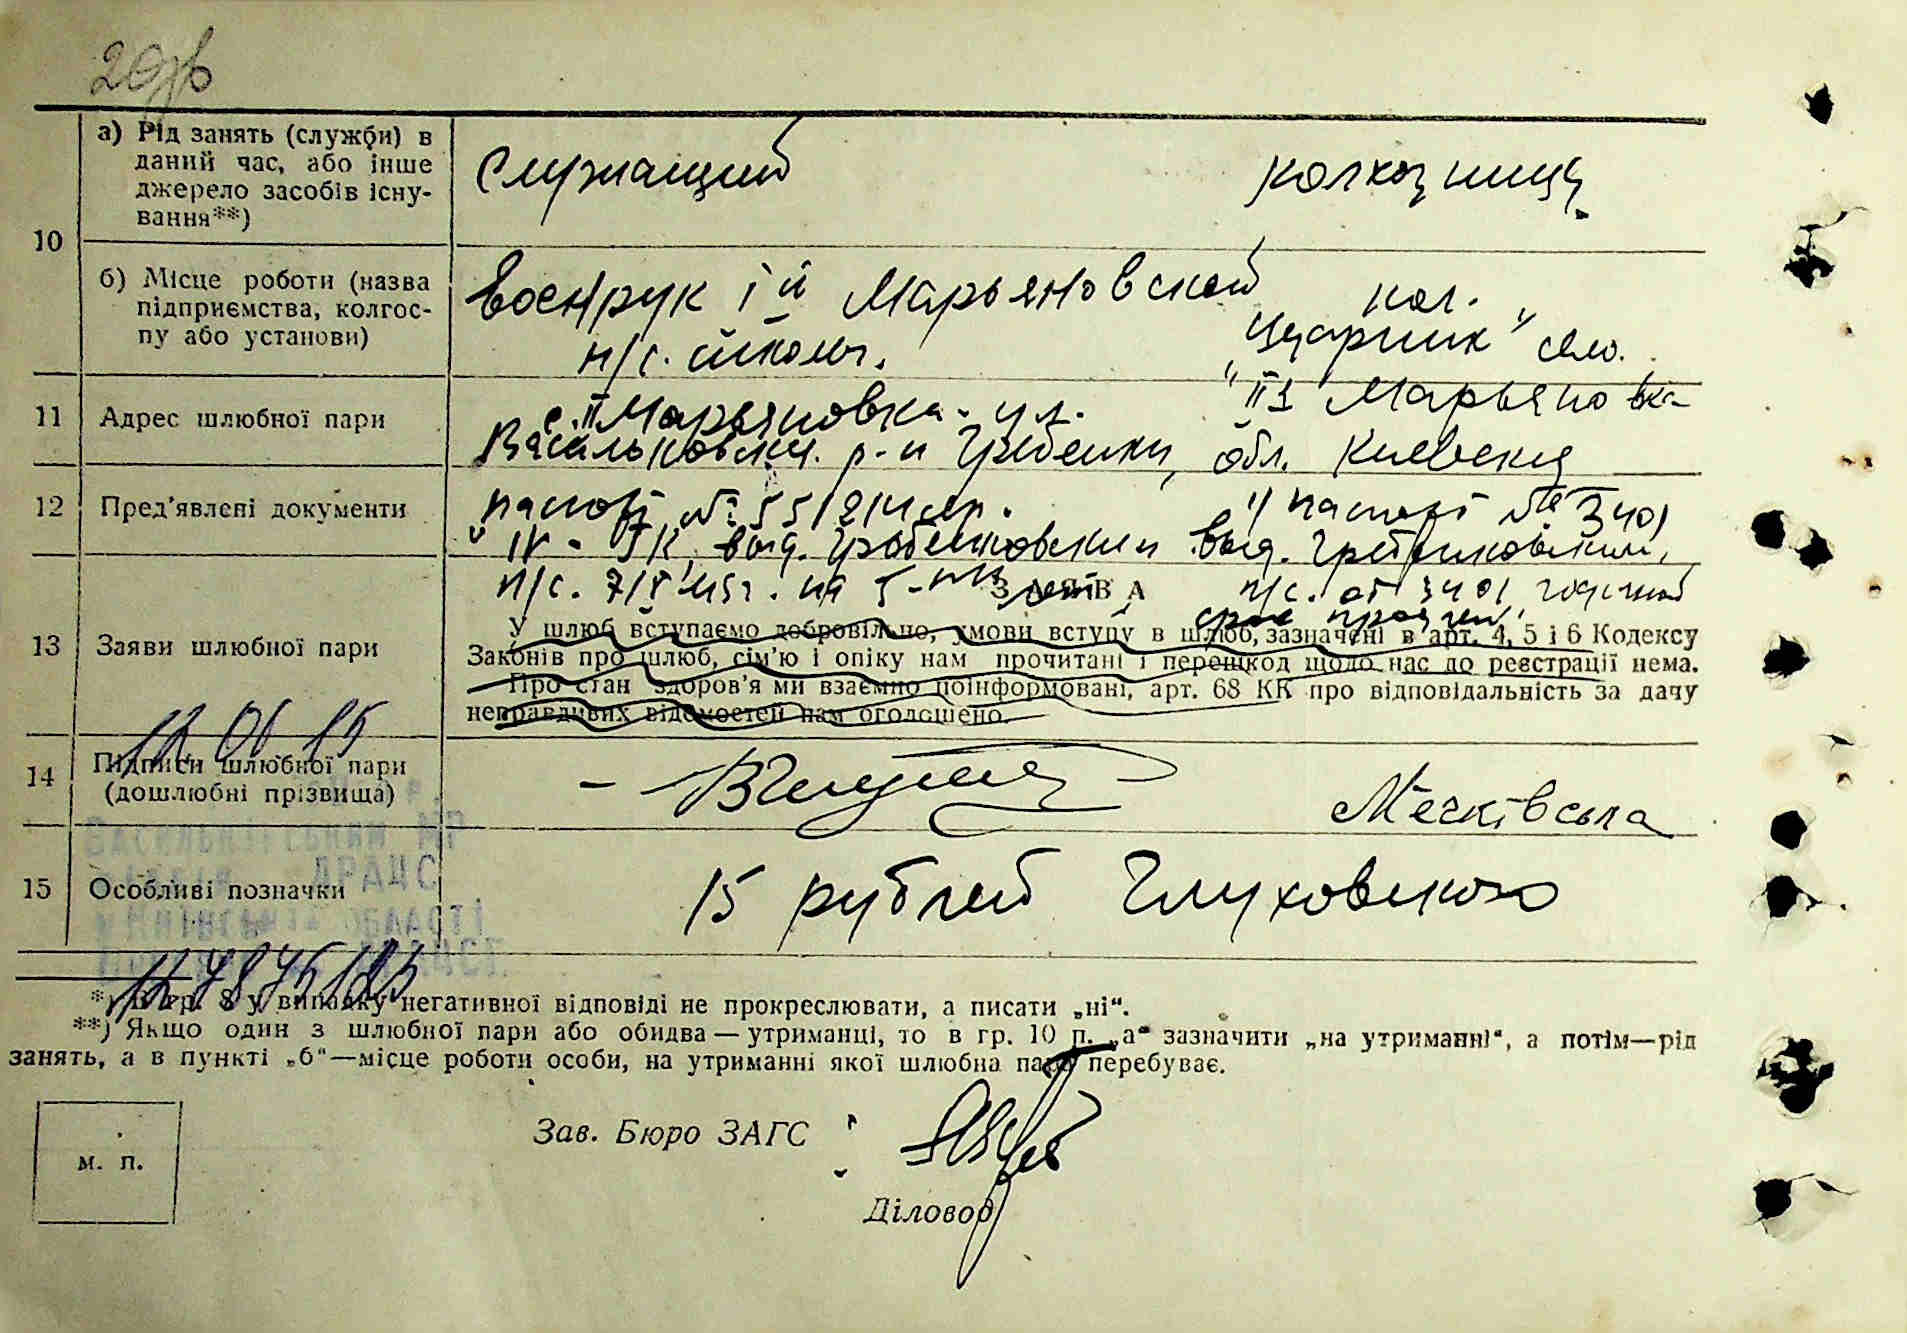 20
10
а) Рід занять (служби) в
даний час, або інше
джерело засобів існу-
вання**)
Служащий
колхозница
б) Місце роботи (назва
підприємства, колгос-
пу або установи)
Военрук 1й Марьяновской
н/с. школы.
кол.
"Ударник" село.
II Марьяновка
11
Адрес шлюбної пари
с. II Марьяновка. ул.
Васильковский. р-н Гребенки, обл. Киевская
12
Пред'явлені документи
паспорт №
IV - выд. Гребенковским
н/с. 7/V 45г. на 5-
1) паспорт № 3401
выд. Гребенковским,
н/с. от 3401 годичный
срок
ЗАЯВА
13
Заяви шлюбної пари
У шлюб вступаємо добровільно, умови вступу в шлюб, зазначені в арт. 4, 5 і 6 Кодексу
Законів про шлюб, сім'ю і опіку нам прочитані і перешкод щодо нас до реєстрації нема.
Про стан здоров'я ми взаємно поінформовані, арт. 68 КК про відповідальність за дачу
неправдивих відомостей нам оголошено.
14
Підписи шлюбної пари
(дошлюбні прізвища)
Мечківська
15
Особливі позначки
15 рублей Глуховского
Васильківський МР
ДРАЦС
у Київській області
*) в гр. 8 у випадку негативної відповіді не прокреслювати, а писати „ні“.
**) Якщо один з шлюбної пари або обидва—утриманці, то в гр. 10 п. „а“ зазначити „на утриманні“, а потім—рід
занять, а в пункті „б“—місце роботи особи, на утриманні якої шлюбна пара перебуває.
Зав. Бюро ЗАГС
м. п.
Діловод